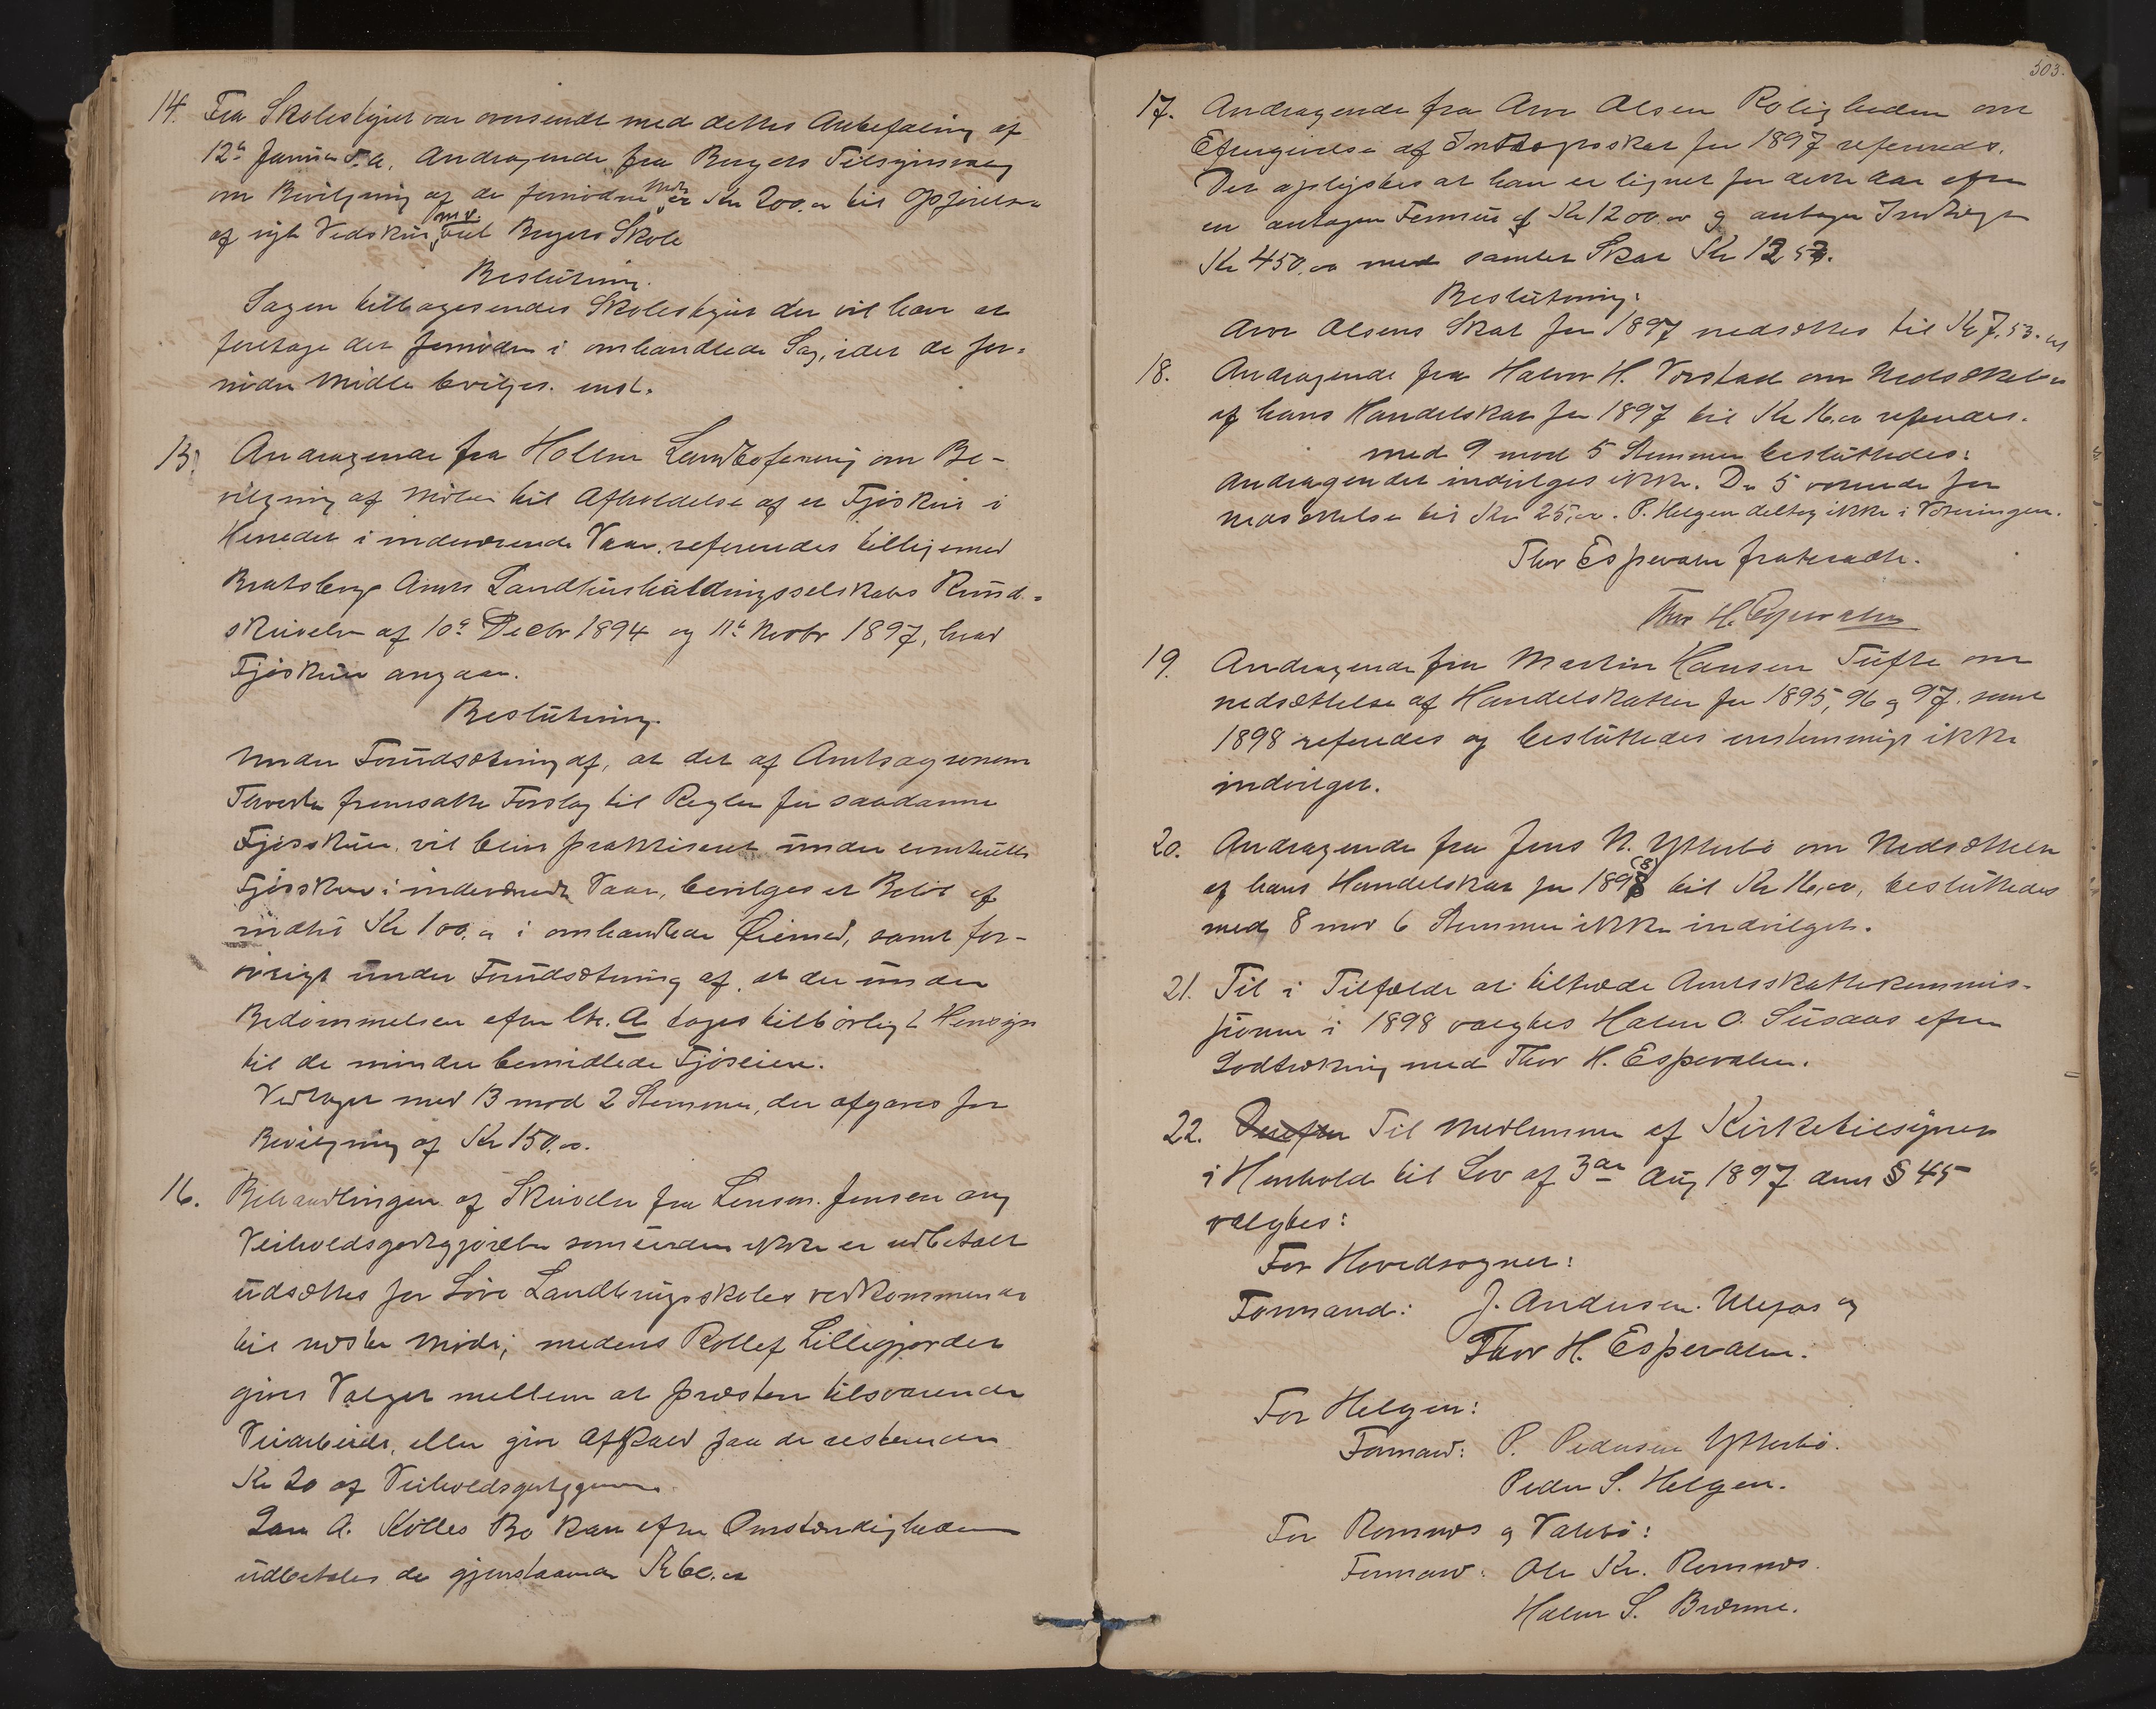 14. Fra Skolestyret var oversendt med dettes Anbefaling af
12te Januar d.a. Andragende fra Bergers Tilsynsvalg
om Bevilgning af de fornødne Midler Kr 200.00 til Opførelse
af nyt Vedskur m.v. ved Bergers Skole
Beslutning.
Sagen tilbagesendes Skolestyret der vil have at
foretage det fornødne i omhandlede Sag, idet de for-
nødne Midler bevilges. enst.
15. Andragende fra Hollen Landboforening om Be-
vilgning af Midler til Afholdelse af et Fjøsskue i
Herredet i indeværende Vaar, refereredes tilligemed
Bratsberg Amts Landhusholdningsselskabs Rund-
skrivelse af 10de Decbr 1894 og 11te Novbr 1897, hvad
Fjøsskuer angaar.
Beslutning.
Under Forudsætning af, at det af Amtsagronom
fremsatte Forslag til Regler for saadanne
Fjøsskuer vil blive praktiseret under eventuelle
Fjøsskuer i indeværende Vaar, bevilges et Beløb af
indtil Kr 100.00 i omhandlede Øiemed, samt for-
øvrigt under Forudsætning af, at der under
Bedømmelsen efter litr. A tages tilbørligt Hensyn
til de mindre bemidlede Fjøseiere.
Vedtaget med 13 mod 2 Stemmer, der afgaves for
Bevilgning af Kr 150.00.
16. Behandlingen af Skrivelse fra Lensm. Jensen ang
Veiholdsgodtgjørelse som endnu ikke er udbetalt
udsættes for Søve Landbrugsskoles vedkommende
til næste Møde; medens Rollef Lillegjordet
gives Valget mellem at præstere tilsvarende
Veiarbeide, eller give Afkald paa de resterende
Kr 20 af Veiholdsgodtgj.
A. Kølles Bo kan efter Omstændighederne
udbetales de gjenstaaende Kr 60.00
503.
17. Andragende fra Aron Olsen Roligheden om
Eftergivelse af Indtægtsskat for 1897 refereredes.
Det oplystes at han er lignet for dette Aar efter
en antagen Formue af Kr 1200.00 og antagen Indtægt
Kr 450.00 med samlet Skat Kr 12.53.
Beslutning:
Aron Olsens Skat for 1897 nedsættes til Kr 7.53.
18. Andragende fra Halvor H. Vorstad om Nedsættelse
af hans Handelsskat for 1897 til Kr 16.00 refereredes.
med 9 mod 5 Stemmer besluttedes:
Andragendet indvilges ikke. De 5 voterede for
nedsættelse til Kr 25,00. P. Helgen deltog ikke i Voteringen.
Thor Espevalen fratraadte.
Thor H. Espevalen
19. Andragende fra Martin Hansen Tufte om
nedsættelse af Handelsskatten for 1895, 96 og 97 samt
1898 refereredes og besluttedes enstemmigt ikke
indvilget.
20. Andragende fra Jens N. Ytterbø om Nedsættelse
af hans Handelsskat for 1898 (8) til Kr 16,00, besluttedes
med 8 mod 6 Stemmer ikke indvilget.
21. Til i Tilfælde at tiltræde Amtsskattekommis-
sionen i 1898 valgtes Halvor O. Susaas efter
Lodtrækning med Thor H. Espevalen.
22. Derefter Til Medlemmer af Kirketilsynet
i Henhold til Lov af 3die Aug 1897 dens § 45
valgtes:
For Hovedsognet:
Formand: J. Andersen Ulefos og
Thor H. Espevalen.
For Helgen:
Formand: P. Pedersen Ytterbø.
Peder S. Helgen.
For Romnes og Valebø:
Formand: Ole Kr. Romnes.
Halvor S. Brenne.